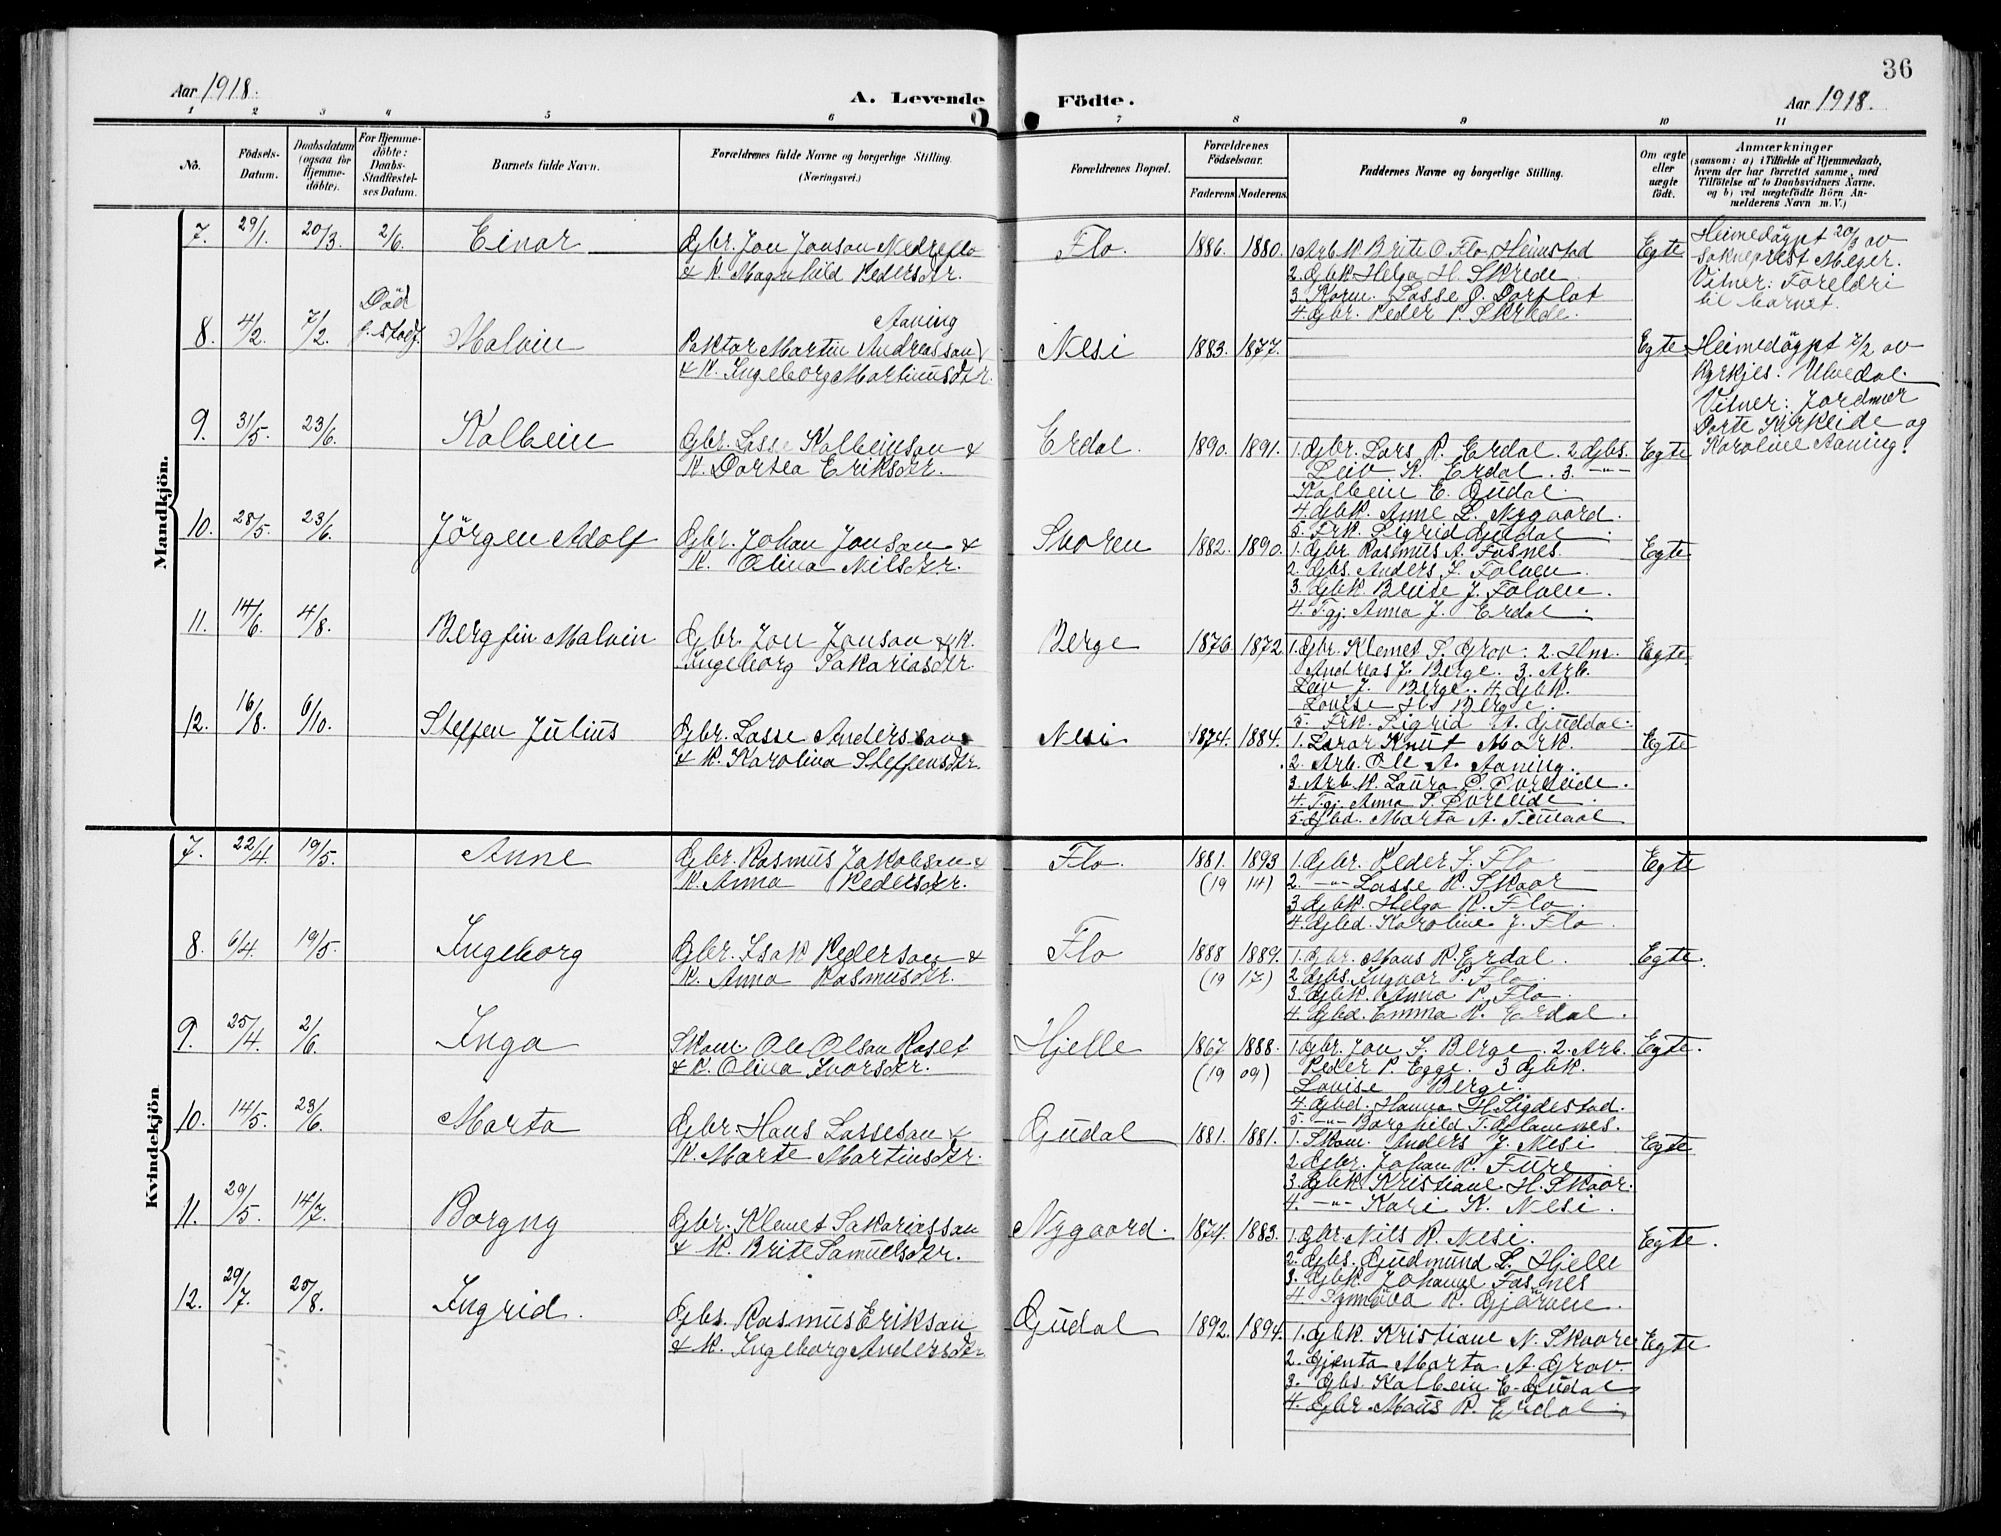 36
Aar 1918.
A. Levende Födte.
Aar 1918.
1 2 3 4 5 6 7 8 9 10 11
No.
Födsels-Datum.
Daabsdatum (ogsaa for Hjemme-döbte).
For Hjemme-döbte: Daabs-Stadfæstel-ses Datum.
Barnets fulde Navn.
Forældrenes fulde Navne og borgerlige Stilling. (Næringsvei.)
Forældrenes Bopæl.
Forældrenes Födselsaar.
Faderens Moderens
Faddernes Navne og borgerlige Stilling.
Om ægte eller uægte födt.
Anmærkninger
(saasom: a) i Tilfælde af Hjemmedaab,
hvem der har forrettet samme, med
Tilföielse af to Daabsvidners Navne.
og b) ved uægtefödte Börn An-
melderens Navn m. V.)
Mandkjön.
7. 29/1. 20/3. 2/6. Einar Gbr. Jon Jonson Nedreflo
& K. Magnhild Pedersdtr.
Flo. 1886. 1880.
1. Arb.K. Brite O. Flo Heimstad
2. Gbk Helga H. Skrede
3. Korm. Lasse O. Dorflot
4. Gbr. Peder P. Skrede.
Egte
Heimedöypt 20/3 av
sokneprest Meyer.
Vitner: Foreldri
til barnet.
8. 4/2. 7/2. Död f. stadf. Malvin
Aaning
Paktar Martin Andreasson
& K. Ingeborg Martinusdtr.
Nesi 1883. 1877. Egte
Heimedöypt 7/2 av
kyrkjes. Ulvedal.
Vitner: Jordmor
Dorte Kirkeide og
Karoline Aaning.
9. 31/5. 23/6. Kolbein Gbr. Lasse Kolbeinson &
K. Dortea Eriksdtr.
Erdal. 1890. 1891.
1. Gbr. Lars R. Erdal. 2. Gbs.
Leiv K. Erdal. 3. -"-
Kolbein E. Gudal.
4. Gbk. Anne L. Nygaard.
5. Frk. Sigrid Guddal.
Egte
10. 28/5. 23/6. Jörgen Adolf Gbr. Johan Jonson &
K. Olina Nilsdtr.
Skoren 1882. 1890.
1. Gbr. Rasmus A. Fosnes.
2. Gbs. Anders J. Folven.
3. Gbk Brite J. Folven.
4. Tgj. Anna J. Erdal.
Egte
11. 14/6. 4/8. Bergfin Malvin Gbr. Jon Jonson & K.
Ingeborg Sakariasdtr.
Berge 1876. 1872
1. Gbr. Klemet S. Grov. 2. Hm.
Andreas J. Berge. 3. Arb.
Leiv J. Berge. 4. Gbk.
Lovise Berge.
5. Frk. Sigrid A. Guddal.
Egte
12. 16/8. 6/10. Steffen Julius Gbr. Lasse Anderson
& K. Karolina Steffensdtr.
Nesi 1874. 1884.
1. Lærar Knut Mork.
2. Arb. Ole A. Aaning.
3. Arb.K. Laura S. Övreeide.
4. Tgj. Anna S. Övreeide.
5. Gbd. Marta A. Temaal
Egte
Kvindekjön
7. 22/4. 19/5. Anne Gbr. Rasmus Jakobson &
K. Anna Pedersdtr.
Flo. 1881. 1893
(19 14)
1. Gbr. Peder J. Flo
2. -"- Lasse R. Skaar
3. Gbk. Helga R. Flo.
4. Gbd. Karoline J. Flo.
Egte
8. 6/4. 19/5. Ingeborg Gbr. Isak Pederson &
K. Anna Rasmusdtr.
Flo 1888 1889.
(19 17)
1. Gbr. Mons R. Erdal.
2. Gbs. Ingvar P. Flo.
3. Gbk. Anna P. Flo.
4. Gbd. Emma R. Erdal.
Egte.
9. 25/4. 2/6. Inga Skom. Ole Olson Raset
& K. Olina Ivarsdtr.
Hjelle 1867 1888.
(19 09)
1. Gbr. Jon J. Berge. 2. Arb.
Peder P. Egge. 3. Gbk.
Lovise Berge.
4. Gbd. Hanna H. Sigdestad.
5. -"- Borghild T. Glomnes.
Egte.
10. 14/5. 23/6. Marta Gbr. Hans Lasseson &
K. Marte Martinsdtr.
Gudal 1881. 1881.
1. Skom. Anders J. Nesi
2. Gbr. Johan R. Fure
3. Gbk Kristiane H. Skaar.
4. -"- Kari K. Nesi.
Egte
11. 29/5. 14/7. Borgny Gbr. Klemet Sakariasson
& K. Brite Samuelsdtr.
Nygaard. 1874. 1883.
1. Gbr Nils R. Nesi.
2. Gbs. Gudmund L. Hjelle
3. Gbk. Johanne Fosnes
4. Synnöva R. Gjörven.
Egte.
12. 29/7. 25/8. Ingrid. Gbs. Rasmus Erikson
& K. Ingeborg Andersdtr
Gudal 1892. 1894.
1. Gbk. Kristiane N. Skaare
2. Gjenta Marta A. Grov.
3. Gbs. Kolbein E. Gudal
4. Gbr. Mons R. Erdal.
Egte